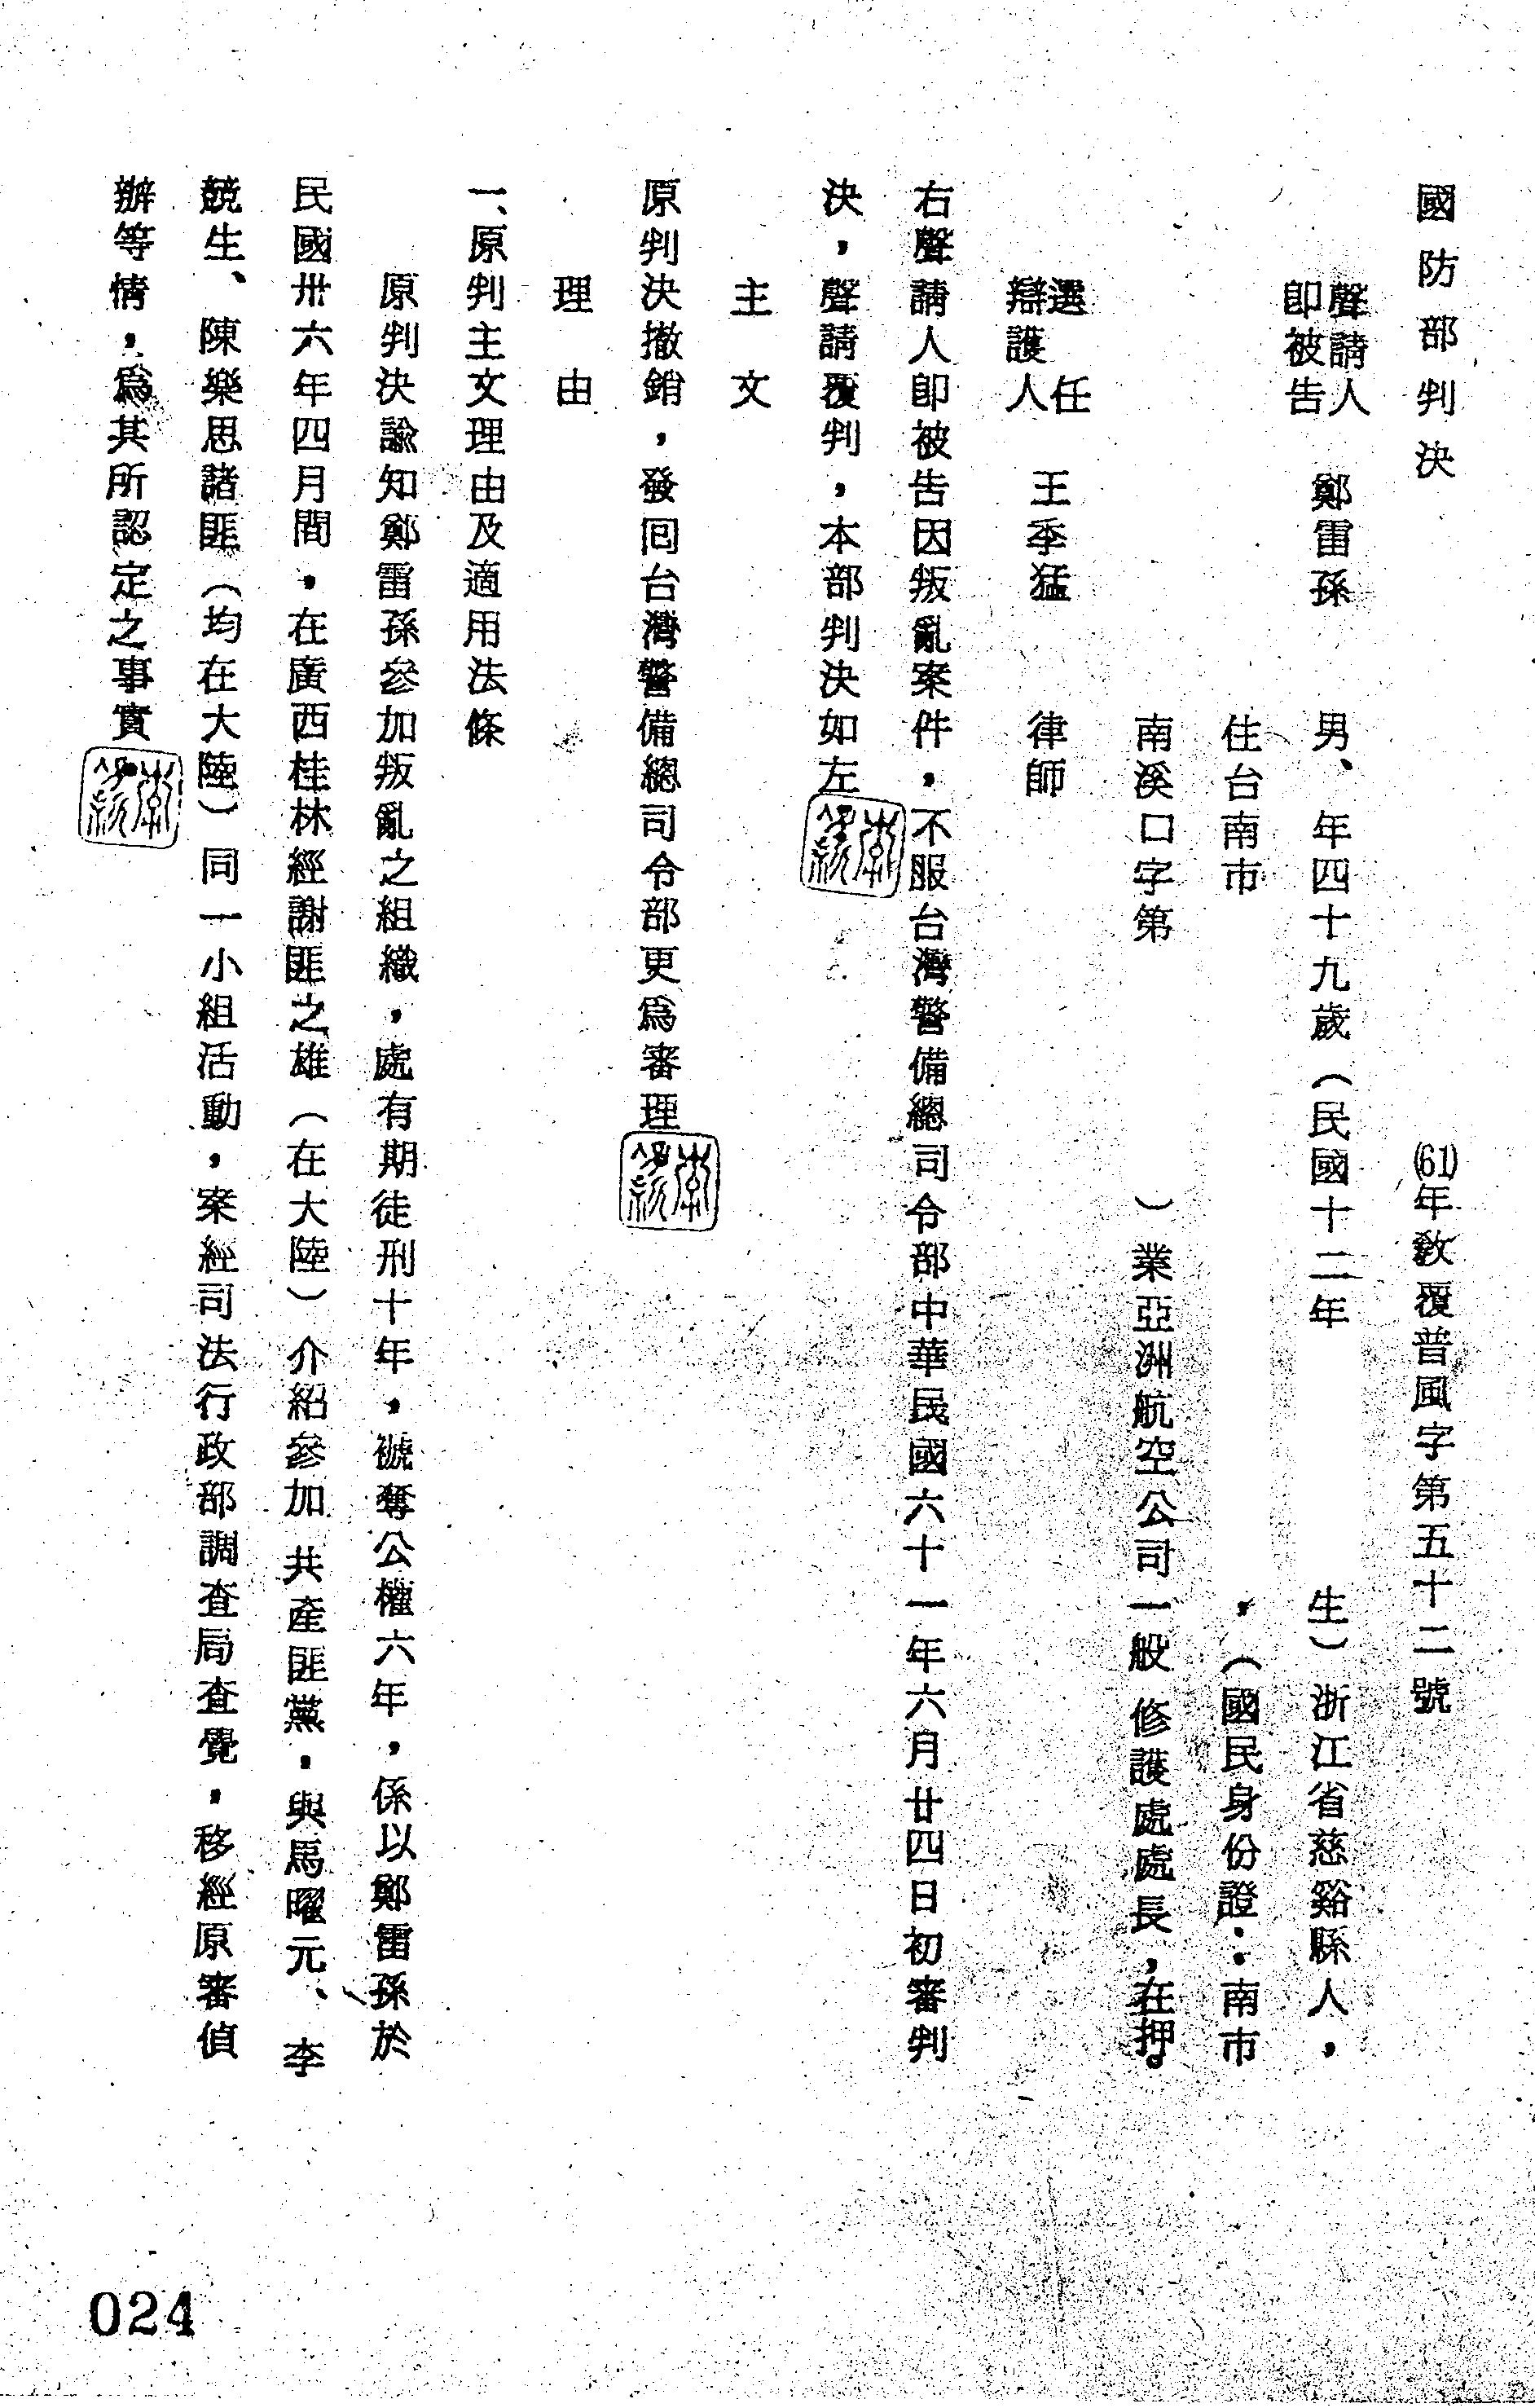 國防部判決 (61)年敎覆普風字第五十二號
聲請人
即被告 鄭雷孫 男、年四十九歲（民國十二年 生）浙江省慈谿縣人，
住台南市 ，（國民身份證：南市
南溪口字第 ）業亞洲航空公司一般修護處處長，在押。
選任
辯護人 王季猛 律師
右聲請人即被告因叛亂案件，不服台灣警備總司令部中華民國六十一年六月廿四日初審判
決，聲請覆判，本部判決如左
主文
原判決撤銷，發回台灣警備總司令部更為審理
理由
一、原判主文理由及適用法條
原判決諭知鄭雷孫參加叛亂之組織，處有期徒刑十年，褫奪公權六年，係以鄭雷孫於
民國卅六年四月間，在廣西桂林經謝匪之雄（在大陸）介紹參加共產匪黨，與馬曜元、李
競生、陳樂思諸匪（均在大陸）同一小組活動，案經司法行政部調查局查覺，移經原審偵
辦等情，為其所認定之事實
024